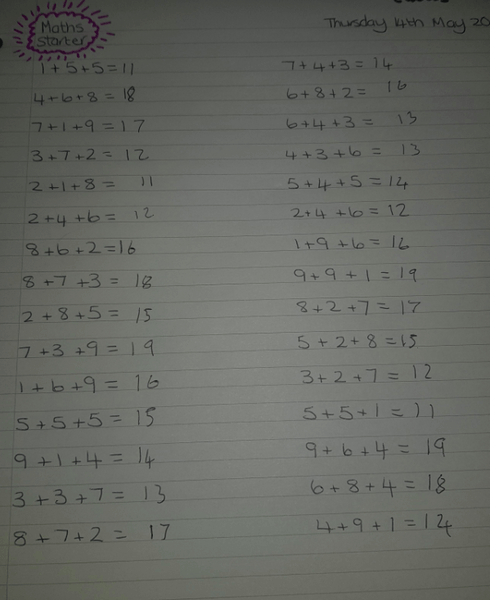 Maths
Starter
Thursday 14th May 20
1+5+5=11
4+6+8=18
7+1+9=17
3+7+2=12
2+1+8=11
2+4+6=12
8+6+2=16
8+7+3=18
2+8+5=15
7+3+9=19
1+6+9=16
5+5+5=15
9+1+4=14
3+3+7=13
8+7+2=17
7+4+3=14
6+8+2=16
6+4+3=13
4+3+6=13
5+4+5=14
2+4+6=12
1+9+6=16
9+9+1=19
8+2+7=17
5+2+8=15
3+2+7=12
5+5+1=11
9+6+4=19
6+8+4=18
4+9+1=14